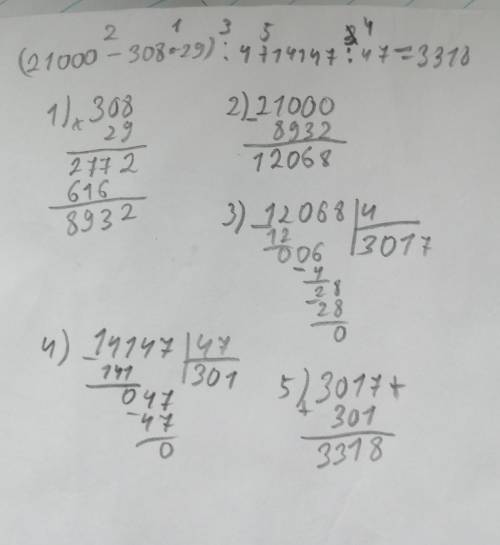 2 1 3 5 4
(21000 - 308·29) : 4 + 14147 : 47 = 3318
1) × 308
29
2772
616
8932
2) - 21000
8932
12068
3) - 12068 | 4
12 | 3017
006
- 4
28
- 28
0
4) - 14147 | 47
141 | 301
047
- 47
0
5) + 3017 +
301
3318